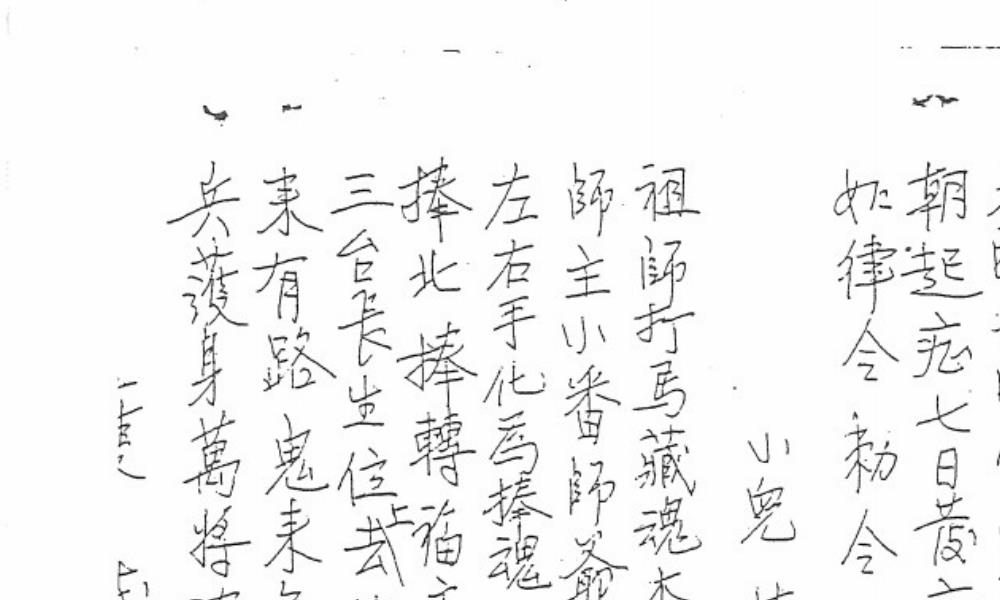 朝起痣七日發
如律令勅令
小兒
祖師打馬藏魂
師主小番師爺
左右手化為捧魂
捧北捧轉福
三台長生位上去
来有路鬼来
兵護身萬將